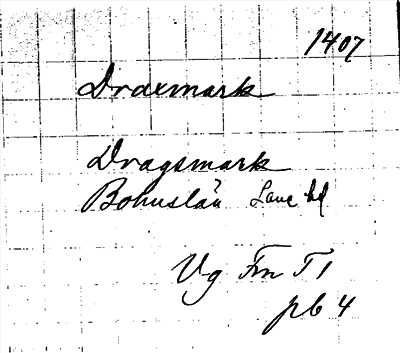 1407
Draxmark
Dragsmark
Bohuslän Lane hd
Vg Fm T 1
pb 4